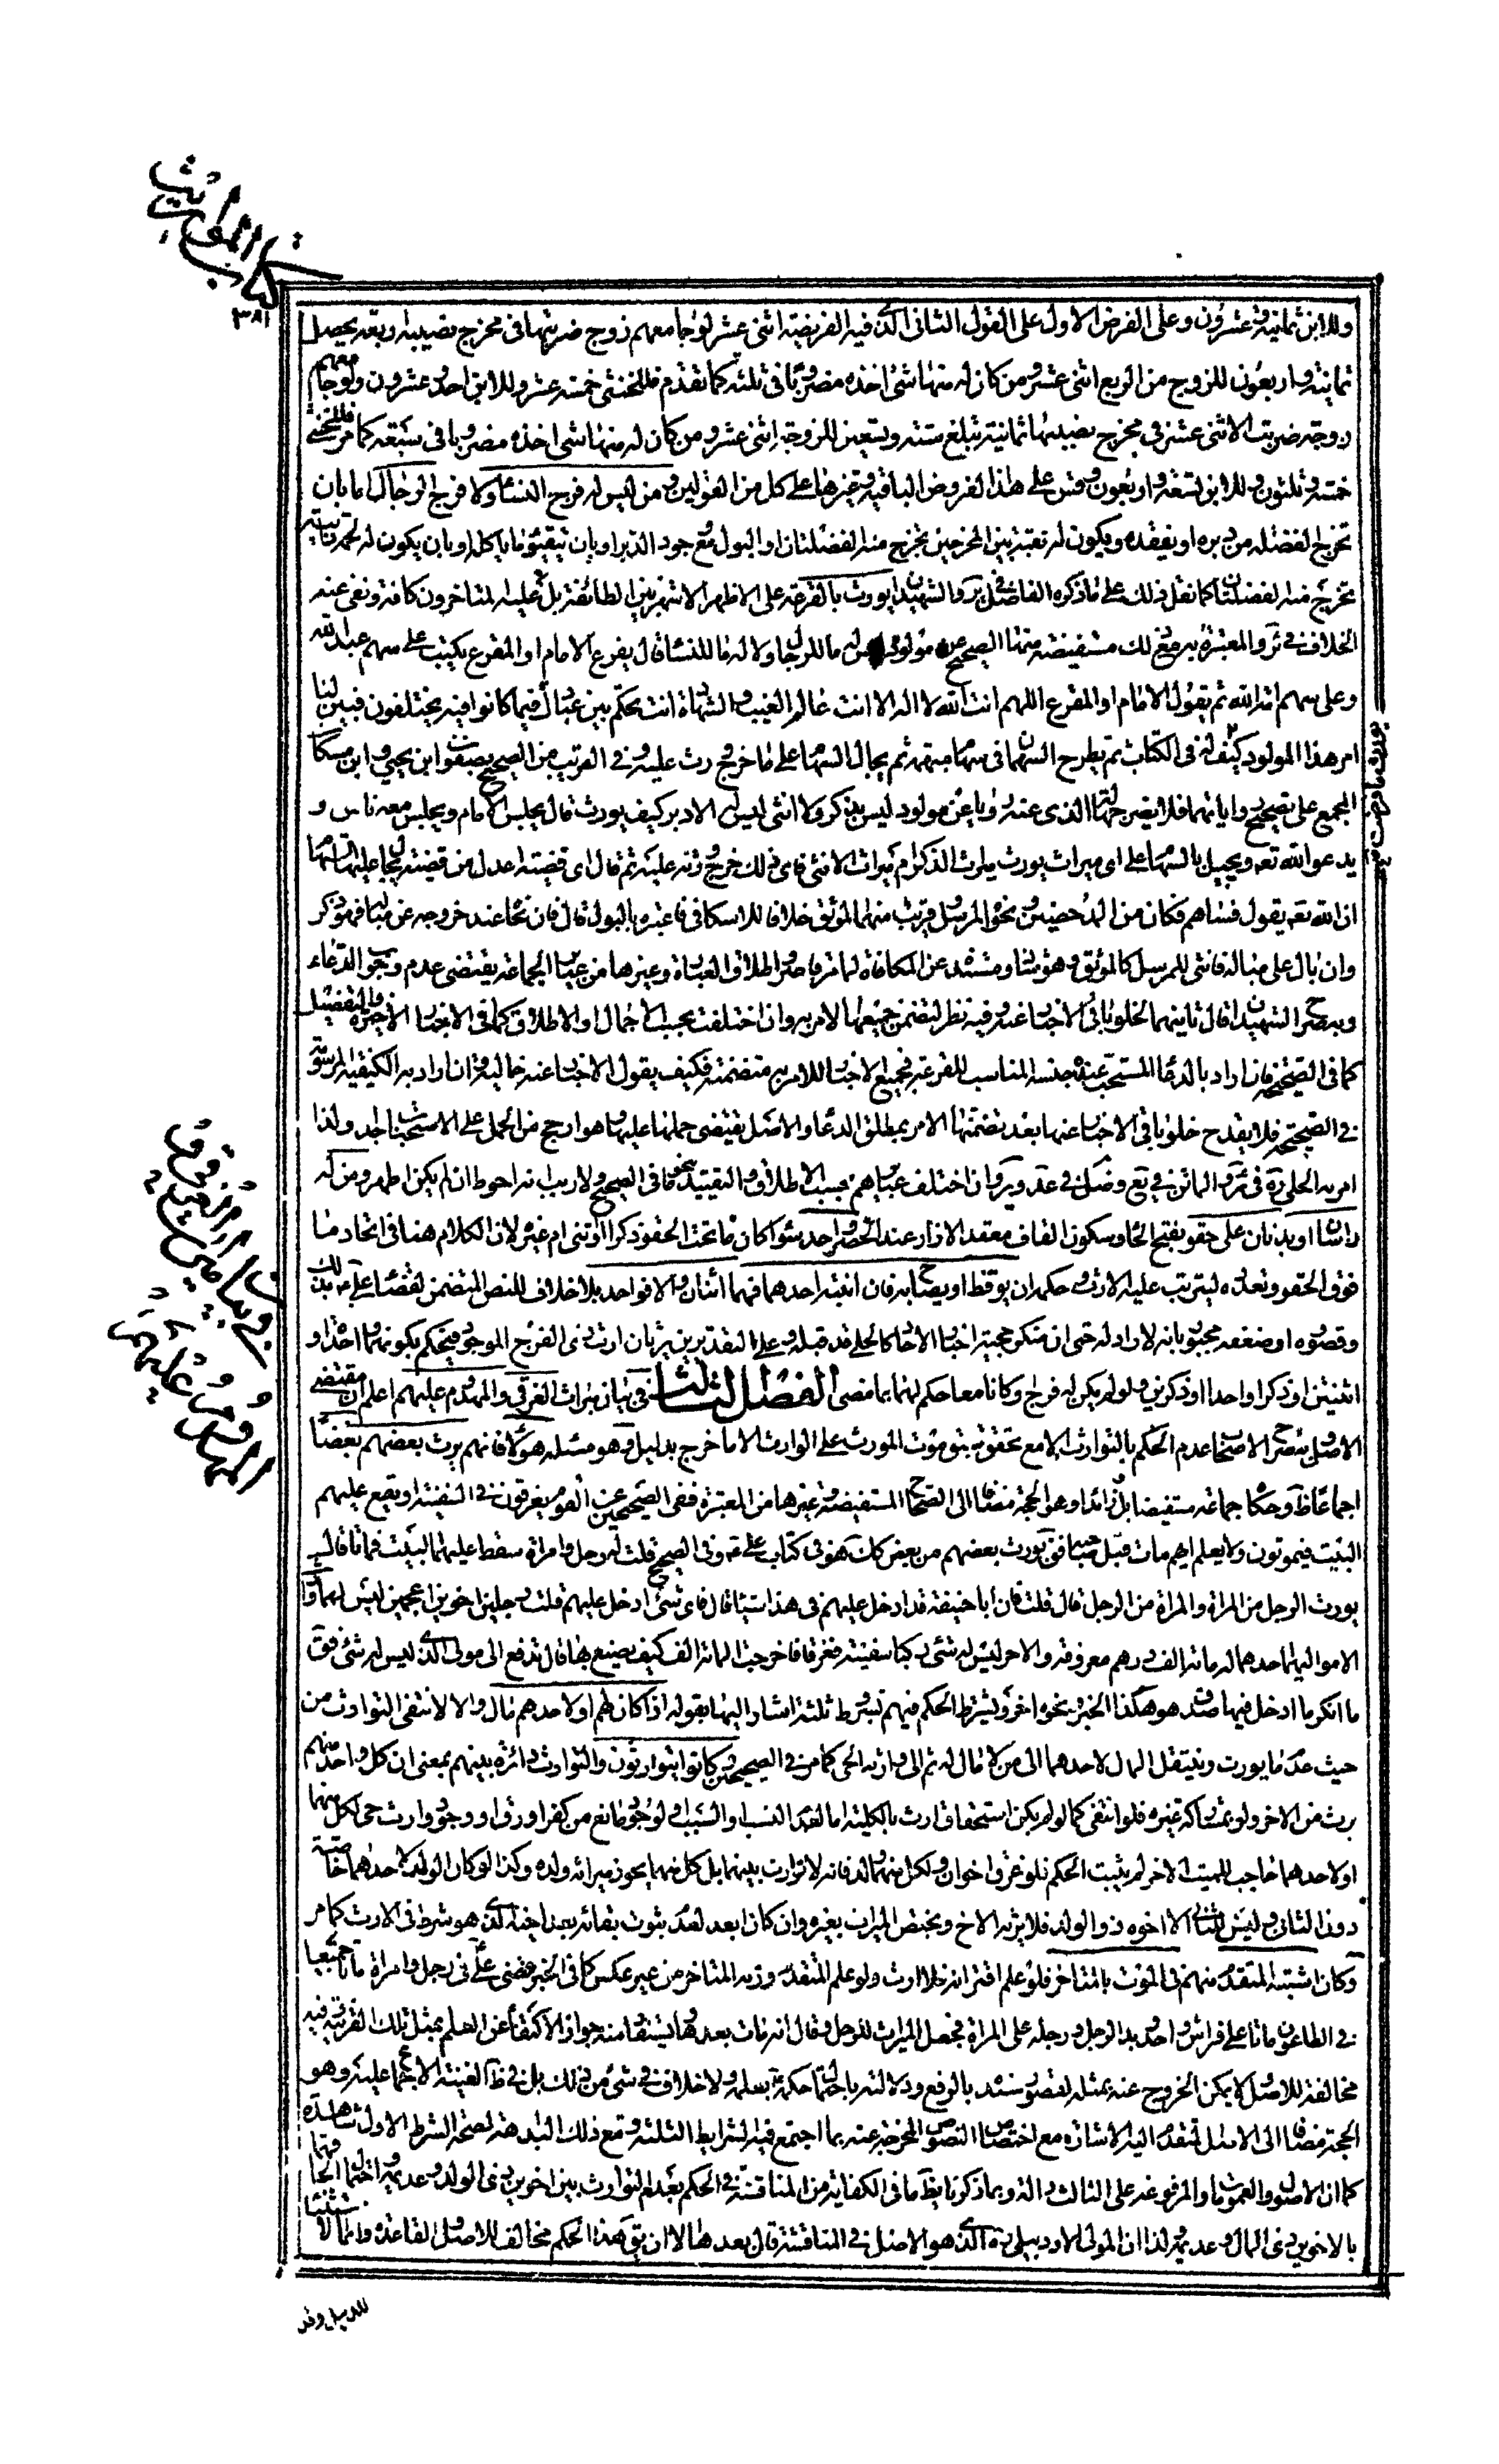 كتاب المواريث
٣٨١
وللابن ثمانية وعشرون وعلى الفرض الاول على القول الثانى الذى فيه الفريضة اثنى عشر لو جامعهم زوج ضربتها فى مخرج نصيبه اربعة يحصل
ثمانية واربعون للزوج من الربع اثنى عشر ومن كان له منها شئ اخذه مضروبا فى ثلثه كما تقدم فللخنثى خمسة عشر وللابن احد وعشرون ولو جامعهم
زوجة ضربت الاثنى عشر فى مخرج نصيبها ثمانية تبلغ ستة وتسعين للزوجة اثنى عشر ومن كان له منها شئ اخذه مضروبا فى سبعة كما مر فللخنثى
خمسة وثلثون وللابن تسعة واربعون وقس على هذا الفروض الباقية وغيرها على كل من القولين ومن ليس له فرج النساء ولا فرج الرجال اما بان
تخرج الفضلة من دبره او يفقده ويكون له ثقبة بين المخرجين تخرج منه الفضلتان او البول مع وجود الدبر او بان يتقيئو ما ياكله او بان يكون له لحمة رابية
تخرج منه الفضلتان كما نقل ذلك على ما ذكره الفاضل فى ير والشهيدان يورث بالقرعة على الاظهر الاشهر بين الطائفة بل عليه المتاخرون كافة ونفى عنه
الخلاف فى ئر والمعتبرة به مع ذلك مستفيضة منها الصحيح عن مولود ليس له ما للرجال ولا له ما للنساء قال يقرع الامام او المقرع يكتب على سهم عبد الله
وعلى سهم امة الله ثم يقول الامام او المقرع اللهم انت الله لا اله الا انت عالم الغيب والشهادة انت تحكم بين عبادك فيما كانوا فيه يختلفون فبين لنا
امر هذا المولود كيف يورث ما فرضت له فى الكتاب ثم يطرح السهمان فى سهام مبهمة ثم يجال السهام على ما خرج ورث عليه وفى القريب من الصحيح بصفوان بن يحيى وابن مسكان
المجمع على تصحيح رواياتهما فلا يضر جهالة الذى عنه روياه عن مولود ليس بذكر ولا انثى ليس له الا دبر كيف يورث قال يجلس الامام ويجلس معه ناس و
يدعو الله تعه ويجيل بالسهام على اى ميراث يورث ميراث الذكر ام ميراث الانثى فاى ذلك خرج ورثه عليه ثم قال اى قضية اعدل من قضية يجال عليها بالسهام
ان الله تعه يقول فساهم فكان من المدحضين ونحو المرسل وقريب منهما الموثق خلافا للاسكافى فاعتبره بالبول قال فان نحا عند خروجه عن مباله فهو ذكر
وان بال على مباله فانثى للمرسل كالموثق وهو شاذ ومستنده عن المكافاة لما مر قاصر واطلاق العبارة وغيرها من عبائر الجماعة يقتضى عدم وجوب الدعاء
وبه صرح الشهيدان قال ثانيهما لخلو باقى الاخبار عنه وفيه نظر لتضمن جميعها الامر به وان اختلفت بحسب الاجمال والاطلاق كما فى الاخبار الاخيرة والتفصيل
كما فى الصحيحة فان اراد بالدعاء المستحب عنده جنسه المناسب للقرعة فجميع الاخبار للامر به متضمنة فكيف يقول الاخبار عنه خالية وان اراد به الكيفية المرسومة
فى الصحيحة فلا يقدح خلو باقى الاخبار عنها بعد تضمنها الامر بمطلق الدعاء والاصل يقتضى حملها عليها وهو ارجح من الحمل على الاستحباب جدا ولذا
امر به الحلى ره فى ئر والماتن فى يع وفضل فى عد وير وان اختلف عباراتهم بحسب الاطلاق والتقييد بنحو ما فى الصحيح ولا ريب انه احوط ان لم يكن اظهر ومن له
راسان او بدنان على حقو بفتح الحاء وسكون القاف معقد الازار عند الخصر واحد سواء كان ما تحت الحقو ذكرا او انثى ام غيره لان الكلام هنا فى اتحاد ما
فوق الحقو وتعدده ليترتب عليه الارث وحكمه ان يوقظ او يصاح به فان انتبه احدهما فهما اثنان والا فواحد بلا خلاف للنص المتضمن لقضاء على عه بذلك
وقصوره او ضعفه مجبور بانه لا راد له حتى ان منكر حجية اخبار الاحاد كالحلى قد قبله وعلى التقديرين يرثان ارث ذى الفرج الموجود فيحكم بكونهما واحدا او
انثيين او ذكرا واحدا او ذكرين ولو لم يكن له فرج او كانا معا حكم لهما بما مضى الفصل الثالث فى بيان ميراث الغرقى والمهدوم عليهم اعلم ان مقتضى
الاصول بتصريح الاصحاب عدم الحكم بالتوارث الا مع تحقق ثبوت موت المورث على الوارث الا ما خرج بدليل وهو مسئلة هؤلاء فانهم يرث بعضهم بعضا
اجماعا ظ وحكاه جماعة مستفيضا بل زائدا وهو الحجة مضافا الى الصحاح المستفيضة وغيرها من المعتبرة ففى الصحيحين عن القوم يغرقون فى السفينة او يقع عليهم
البيت فيموتون ولا يعلم ايهم مات قبل صاحبه فق يورث بعضهم من بعض كك هو فى كتاب على عه وفى الصحيح قلت له رجل وامراة سقط عليهما البيت فماتا قال
يورث الرجل من المراة والمراة من الرجل قال قلت فان ابا حنيفة قد ادخل عليهم فى هذا شيئا قال فاى شئ ادخل عليهم قلت رجلين اخوين اعجميين ليس لهما وارث
الا مواليهما احدهما له مائة الف درهم معروفة والاخر ليس له شئ ركبا سفينة فغرقا فاخرجت المائة الف كيف يصنع بها قال تدفع الى مولى الذى ليس له شئ فق
ما انكر ما ادخل فيها صدق هو هكذا الخبر ونحوه اخر ويشترط الحكم فيهم بشروط ثلثة اشار اليها بقوله اذا كان لهم او لاحدهم مال والا لانتفى التوارث من
حيث عدم ما يورث وينتقل المال لاحدهما الى من لا مال له ثم الى وارثه الحى كما مر فى الصحيحين وكانوا يتوارثون والتوارث دائرة بينهم بمعنى ان كل واحد منهم
يرث من الاخر ولو بمشاركة غيره فلو انتفى كما لو لم يكن استحقاق ارث بالكلية اما لفقد النسب او السبب او لوجود مانع من كفر او رق او وجود وارث حى لكل منهما
او لاحدهما حاجب للميت الاخر لم يثبت الحكم فلو غرق اخوان ولكل منهما ولد فانه لا توارث بينهما بل كل منهما يحوز ميراثه ولده وكذا لو كان الولد لاحدهما خاصة
دون الثانى وليس للثانى الا اخوه ذو الولد فلا يرثه الاخ ويختص الميراث بغيره وان كان ابعد لفقد ثبوت بقائه بعد اخيه الذى هو شرط فى الارث كما مر
وكان اشتبه المتقدم منهم فى الموت بالمتاخر فلو علم اقترانه فلا ارث ولو علم المتقدم ورثه المتاخر من غير عكس كما فى الخبر قضى على عه فى رجل وامراة ماتا جميعا
فى الطاعون ماتا على فراش واحد ويد الرجل ورجله على المراة فجعل الميراث للرجل وقال انه مات بعدها ويستفاد منه جواز الاكتفاء عن العلم بمثل تلك القرينة وفيه
مخالفة للاصل لا يمكن الخروج عنه بمثله لقصور سنده بالرفع ودلالته باحتمال حكمه عه بعلمه ولا خلاف فى شئ من ذلك بل فى ظ الغنية الاجماع عليه وهو
الحجة مضافا الى الاصل المتقدم اليه الاشارة مع اختصاص النصوص المخرجة عنه بما اجتمع فيه الشرايط الثلثة ومع ذلك البداهة لصحة الشرط الاول شاهدة
كما ان الاصول والعمومات والمرفوعة على الثالث دالة وبما ذكرنا يظ ما فى الكفاية من المناقشة فى الحكم بعدم التوارث بين اخوين ذى الولد وعديمه واحتمال الحاقهما
بالاخوين ذى المال وعديمه ولذا ان المولى الاردبيلى ره الذى هو الاصل فى المناقشة قال بعدها الا ان يق هذا الحكم مخالف للاصول والقاعدة وانما لا استثنينا
للدليل وقد
فى بيان ميراث الغرقى
والمهدوم عليهم